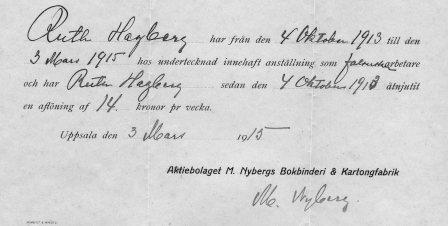 Ruth Hagberg har från den 4 Oktober 1913 till den
3 Mars 1915 hos undertecknad innehaft anställning som arbetare
och har Ruth Hagberg sedan den 4 Oktober 1913 åtnjutit
en aflöning af 14 kronor pr vecka.
Uppsala den 3 Mars 1915
Aktiebolaget M. Nybergs Bokbinderi & Kartongfabrik
M. Nyberg.